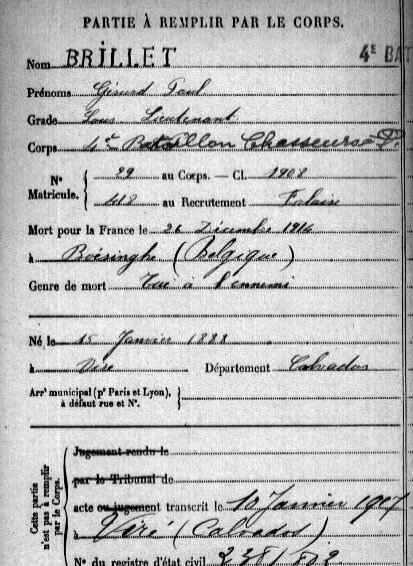 PARTIE À REMPLIR PAR LE CORPS.
Nom BRILLET 4E BAT
Prénoms Gérard Paul
Grade Sous Lieutenant
Corps 4e Bataillon Chasseurs à P.
Nos Matricule. { 29 au Corps. — Cl. 1908
418 au Recrutement Falaise
Mort pour la France le 26 Décembre 1914
à Boësinghe (Belgique)
Genre de mort Tué à l'ennemi
Né le 15 Janvier 1888
à Vire Département Calvados
Arrt municipal (pr Paris et Lyon), à défaut rue et No. }
Cette partie n'est pas à remplir par le Corps.
Jugement rendu le
par le Tribunal de
acte ou jugement transcrit le 10 Janvier
à Viré (Calvados)
No du registre d'état civil